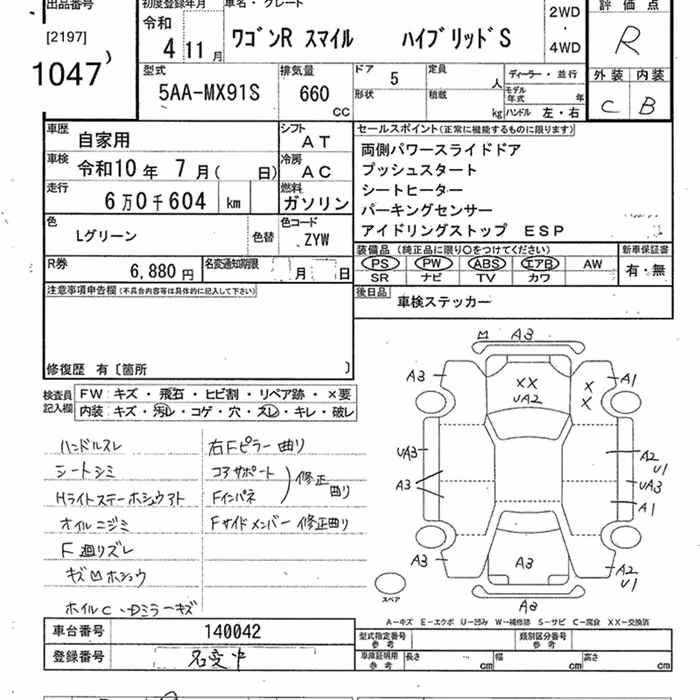 出品番号
[2197]
1047
初度登録年月
令和
4 11 月
車名・グレード
ワゴンR スマイル ハイブリッドS
2WD
・
4WD
評価点
R
型式
5AA-MX91S
排気量
660
CC
ドア 5
形状
定員 人
積載 kg
ディーラー・並行
モデル年式 年
ハンドル 左・右
外装 内装
C B
車歴 自家用
シフト AT
車検 令和10年 7月( 日)
冷房 AC
走行 6万0千604 km
燃料 ガソリン
色 Lグリーン 色替
色コード ZYW
R券 6,880 円
名変通知期限 月 日
セールスポイント(正常に機能するものに限ります)
両側パワースライドドア
プッシュスタート
シートヒーター
パーキングセンサー
アイドリングストップ ESP
装備品 (純正品に限り○をつけてください)
PS PW ABS エアB AW
SR ナビ TV カワ
新車保証書
有・無
後日品 車検ステッカー
注意事項申告欄(不具合内容等は具体的に記入して下さい)
修復歴 有〔箇所 〕
検査員記入欄
FW:キズ・飛石・ヒビ割・リペア跡・×要
内装:キズ・汚レ・コゲ・穴・スレ・キレ・破レ
ハンドルスレ
シートシミ
Hライトステーホシュウアト
オイルニジミ
F廻リズレ
キズ凹ホシュウ
ホイルC・Dミラーキズ
右Fピラー曲り
コアサポート
Fインパネ
修正曲り
Fサイドメンバー修正曲り
凹 A3
A3
XX
UA2
XX
A1
UA3
A3
A2
U1
UA3
A1
A3
A3
A2
U1
A3
スペア
A-キズ E-エクボ U-凹み W-補修跡 S-サビ C-腐食 XX-交換済
車台番号 140042
登録番号 名変中
型式指定番号 参考
類別区分番号 参考
車庫証明用 参考
長さ cm 幅 cm 高さ cm